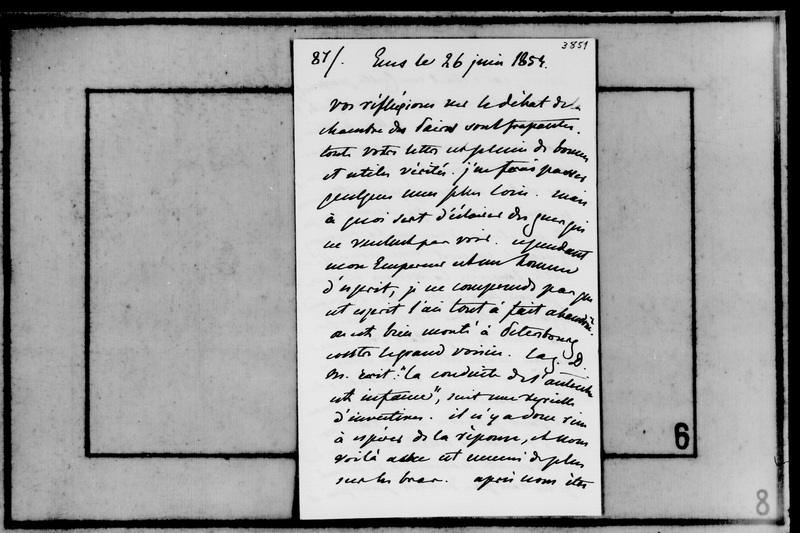 3851
87/. Ems le 26 juin 1854.
vos réflexions sur le débat de la
chambre des Pairs sont frapantes.
toute votre lettre est pleine de bonnes
et utiles vérités. j'en ferai passer
quelques unes plus loin. mais
à quoi sert d'éclairer des gens qui
ne veulent pas voir. cependant
mon Empereur est un homme
d'esprit, je ne comprends pas que
cet esprit l'ait tout à fait abandonné.
on est bien monté à Petersbourg
contre le grand voisin. La g. D.
m. écrit: "la conduite de l'autriche
est infame", suit une kyrielle
d'invectives. il n'y a donc rien
à espérer de la réponse, et nous
voilà avec cet ennemi de plus
sur les bras. après nous êtes
6
8